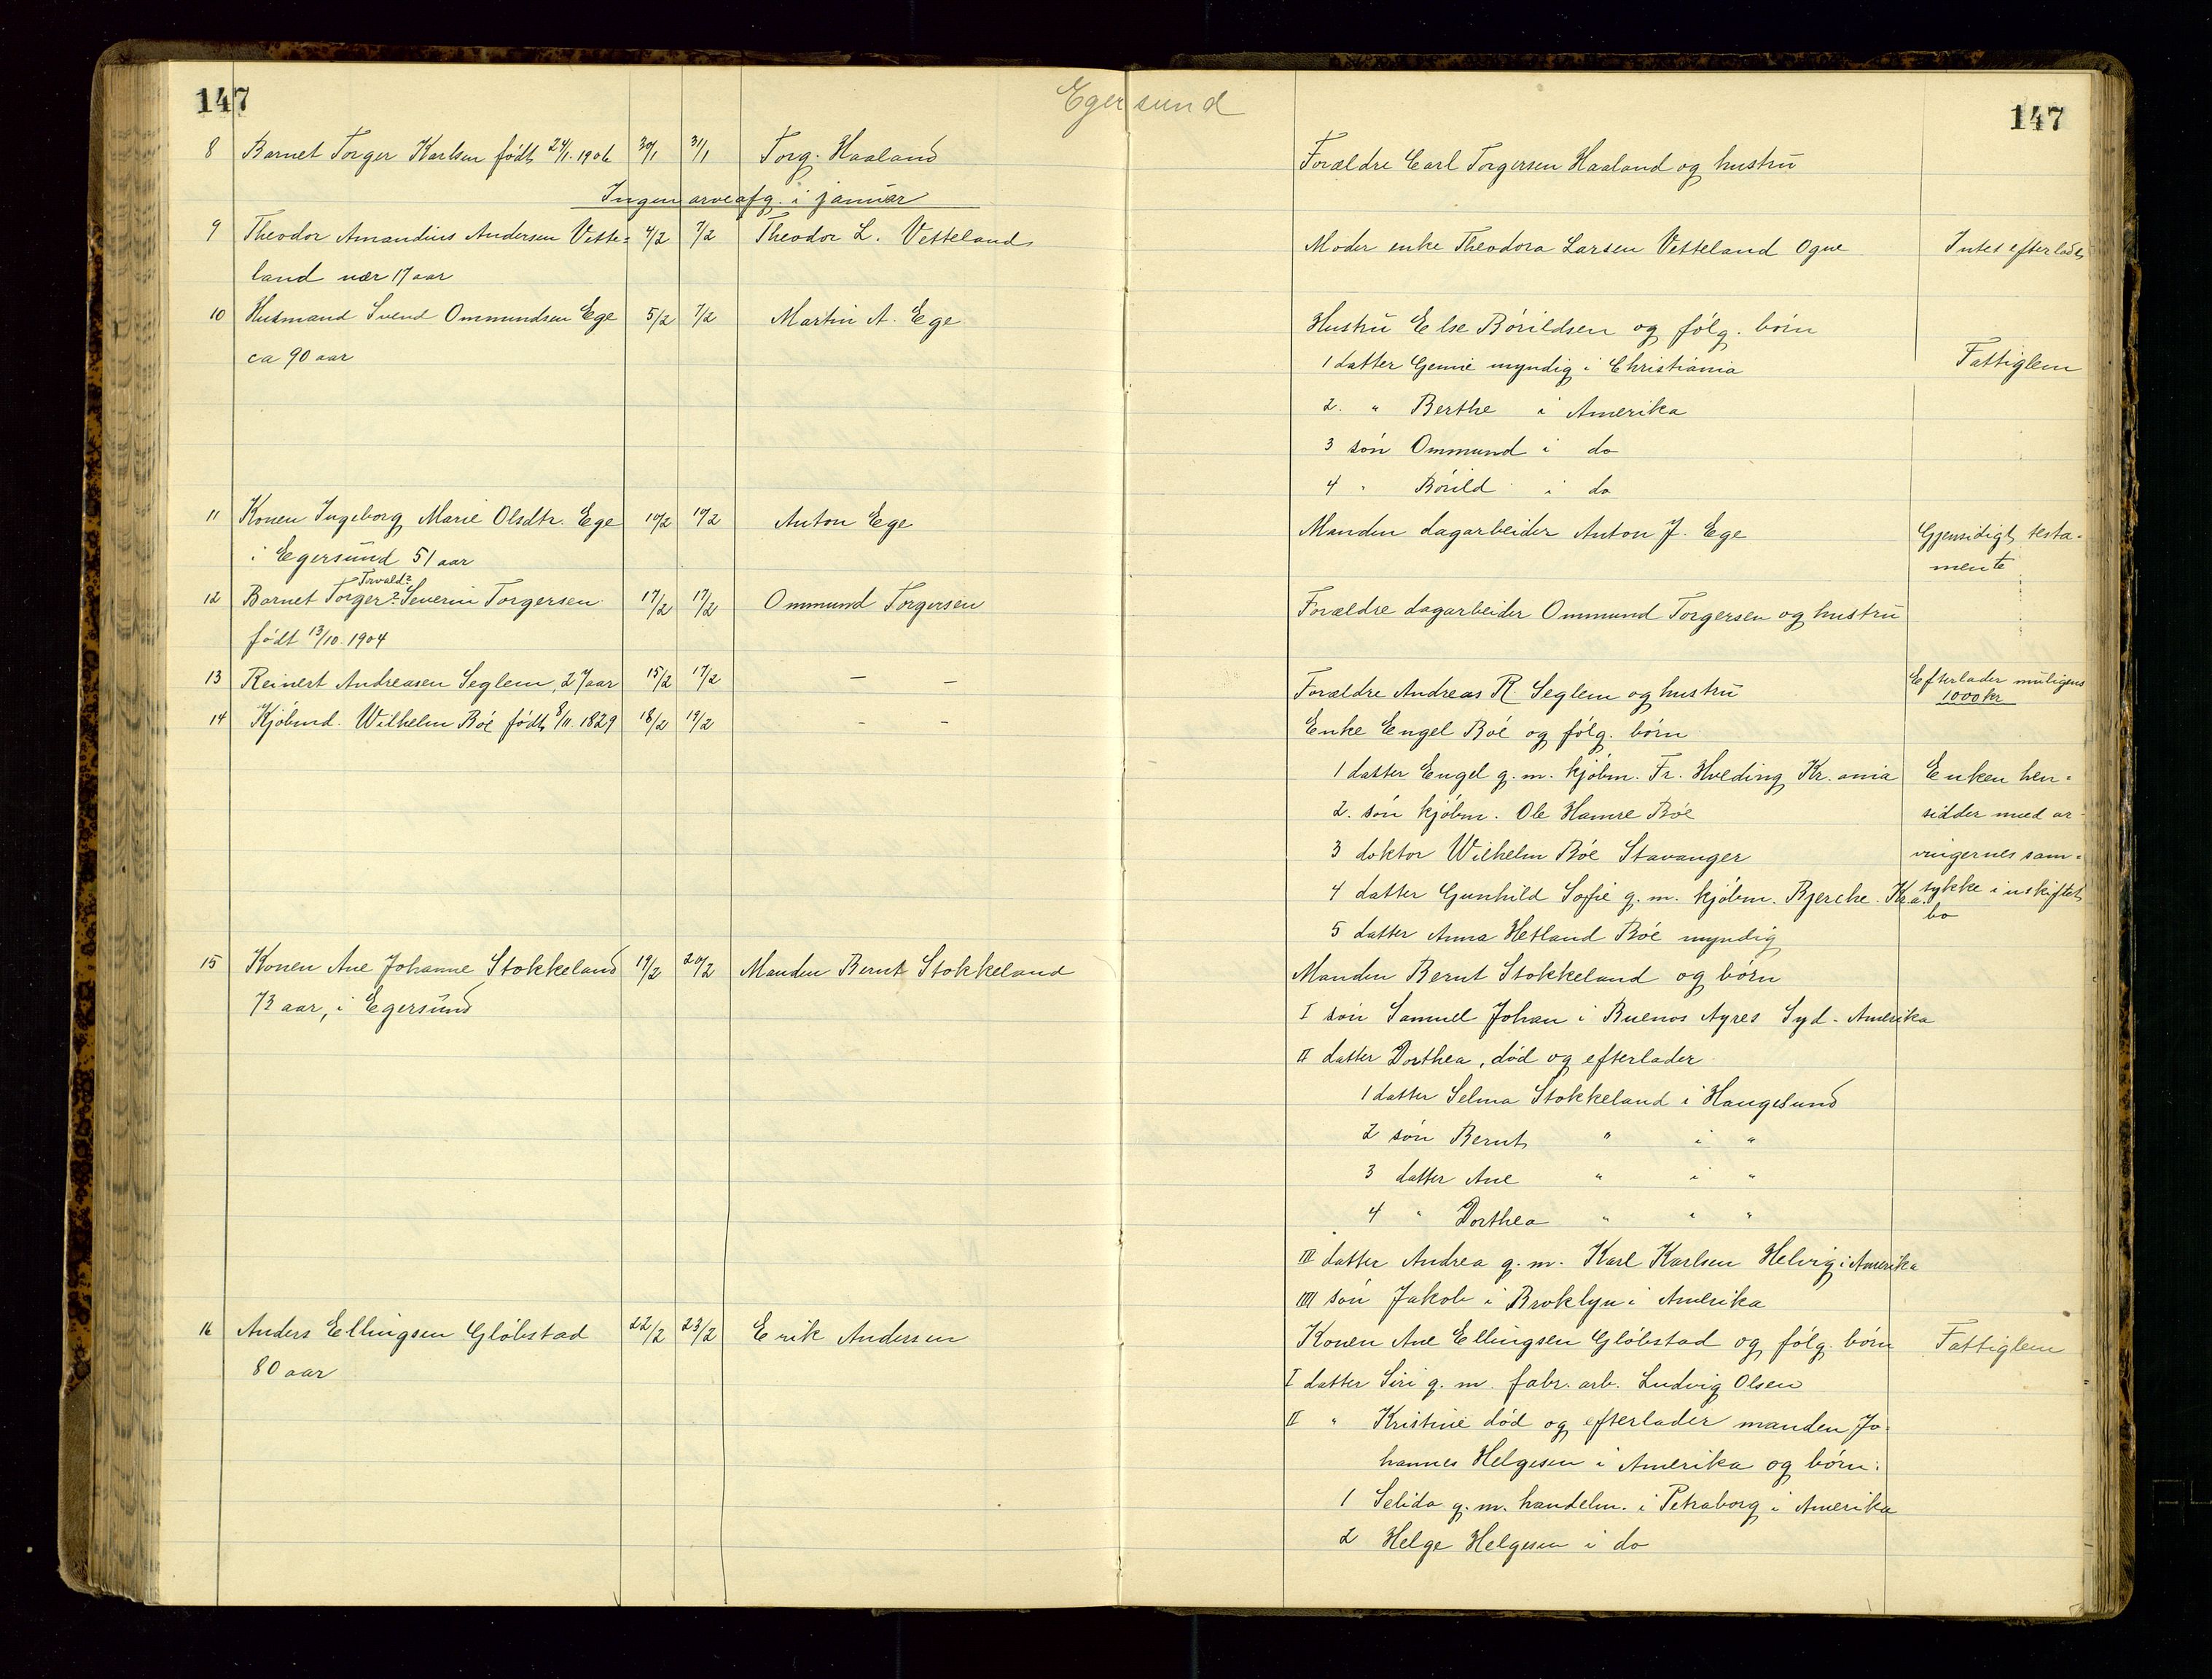 147
Egersund
147
8 Barnet Torger Karlsen født 24/1. 1906 30/1 31/1 Torg. Haaland
Forældre Carl Torgersen Haaland og hustru
Ingen arveafg. i januar
9 Theodor Amandius Andersen Vette= 4/2 7/2 Theodor L. Vetteland
land nær 17 aar
Moder enke Theodora Larsen Vetteland Ogne
Intet efterladt
10 Husmand Svend Ommundsen Ege 5/2 7/2 Martin A. Ege
ca 90 aar
Hustru Else Børildsen og følg. børn
1 datter Genie myndig i Christiania
Fattiglem
2. " Berthe i Amerika
3 søn Ommund i do
4 " Børild i do
11 Konen Ingeborg Marie Olsdtr. Ege 10/2 10/2 Anton Ege
i Egersund 51 aar
Manden dagarbeider Anton J. Ege
Gjensidigt testa-
mente
Trvald?
12 Barnet Torger? Severin Torgersen 17/2 17/2 Ommund Torgersen
født 13/10. 1904
Forældre dagarbeider Ommund Torgersen og hustru
13 Reinert Andreasen Seglem, 27 aar 15/2 17/2 — —
Forældre Andreas R. Seglem og hustru
Efterlader muligens
1000 kr
14 Kjøbmd. Wilhelm Bøe født 8/11. 1829 18/2 19/2 - -
Enke Engel Bøe og følg. børn
1 datter Engel g. m. kjøbm. Fr. Hveding Kr. ania
2. søn kjøbm. Ole Hamre Bøe
3 doktor Wilhelm Bøe Stavanger
4 datter Gunhild Sofie g. m. kjøbm. Bjercke. Kr.a.
5 datter Anna Hetland Bøe myndig
Enken hen-
sidder med ar-
vingernes sam-
tykke i uskiftet
bo
15 Konen Ane Johanne Stokkeland 19/2 20/2 Manden Bernt Stokkeland
73 aar, i Egersund
Manden Bernt Stokkeland og børn
I søn Samuel Johan i Buenos Ayres Syd-Amerika
II datter Dorthea, død og efterlader
1 datter Selma Stokkeland i Haugesund
2 søn Bernt " i "
3 datter Ane " i "
4 " Dorthea " " "
III datter Andrea g. m. Karl Karlsen Helvig i Amerika
IIII søn Jakob i Broklyn i Amerika
16 Anders Ellingsen Gløbstad 22/2 23/2 Erik Andersen
80 aar
Konen Ane Ellingsen Gløbstad og følg. børn
Fattiglem
I datter Siri g. m. fabr. arb. Ludvig Olsen
II " Kristine død og efterlader manden Jo-
hannes Helgesen i Amerika og børn:
1 Selida g. m. handelm. i Petraborg i Amerika
2 Helge Helgesen i do